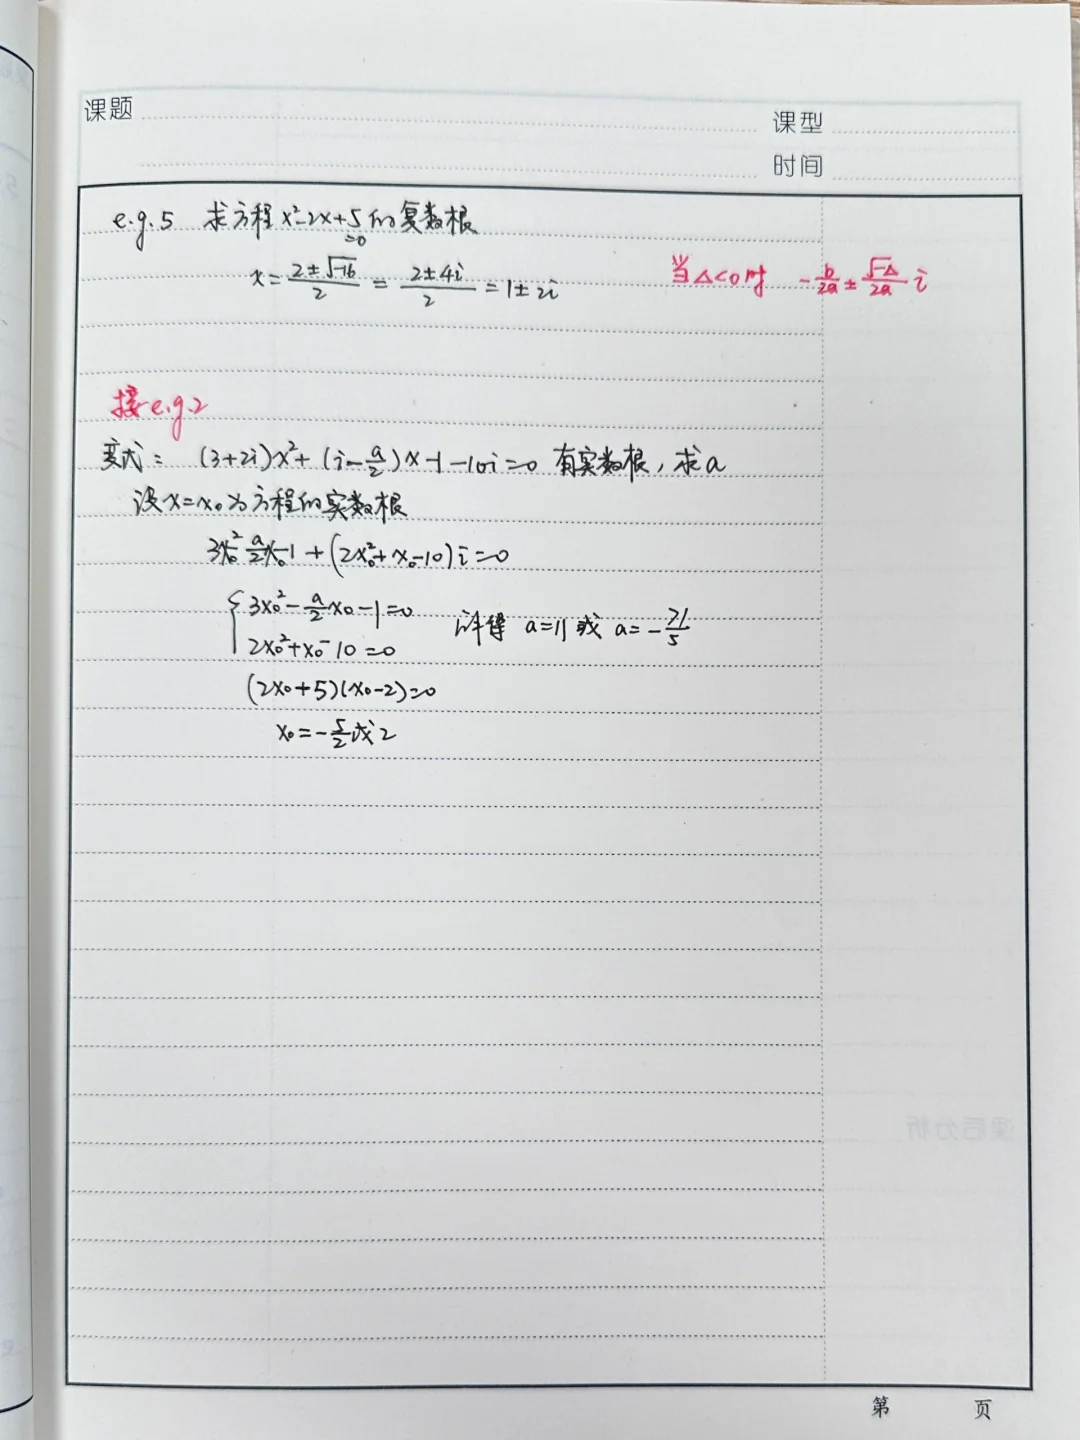 课题
课型
时间
e.g.5 求方程 x²-2x+5=0 的复数根
x = (2±√-16)/2 = (2±4i)/2 = 1±2i
当△<0时 -b/2a ± √-△/2a i
接e.g.2
变式: (3+2i)x²+(i-a/2)x-1-10i=0 有实数根,求a
设x=x₀为方程的实数根
3x₀²-a/2x₀-1+(2x₀²+x₀-10)i=0
{3x₀²-a/2x₀-1=0
2x₀²+x₀-10=0
解得 a=11 或 a=-71/5
(2x₀+5)(x₀-2)=0
x₀=-5/2或2
课后分析
第 页